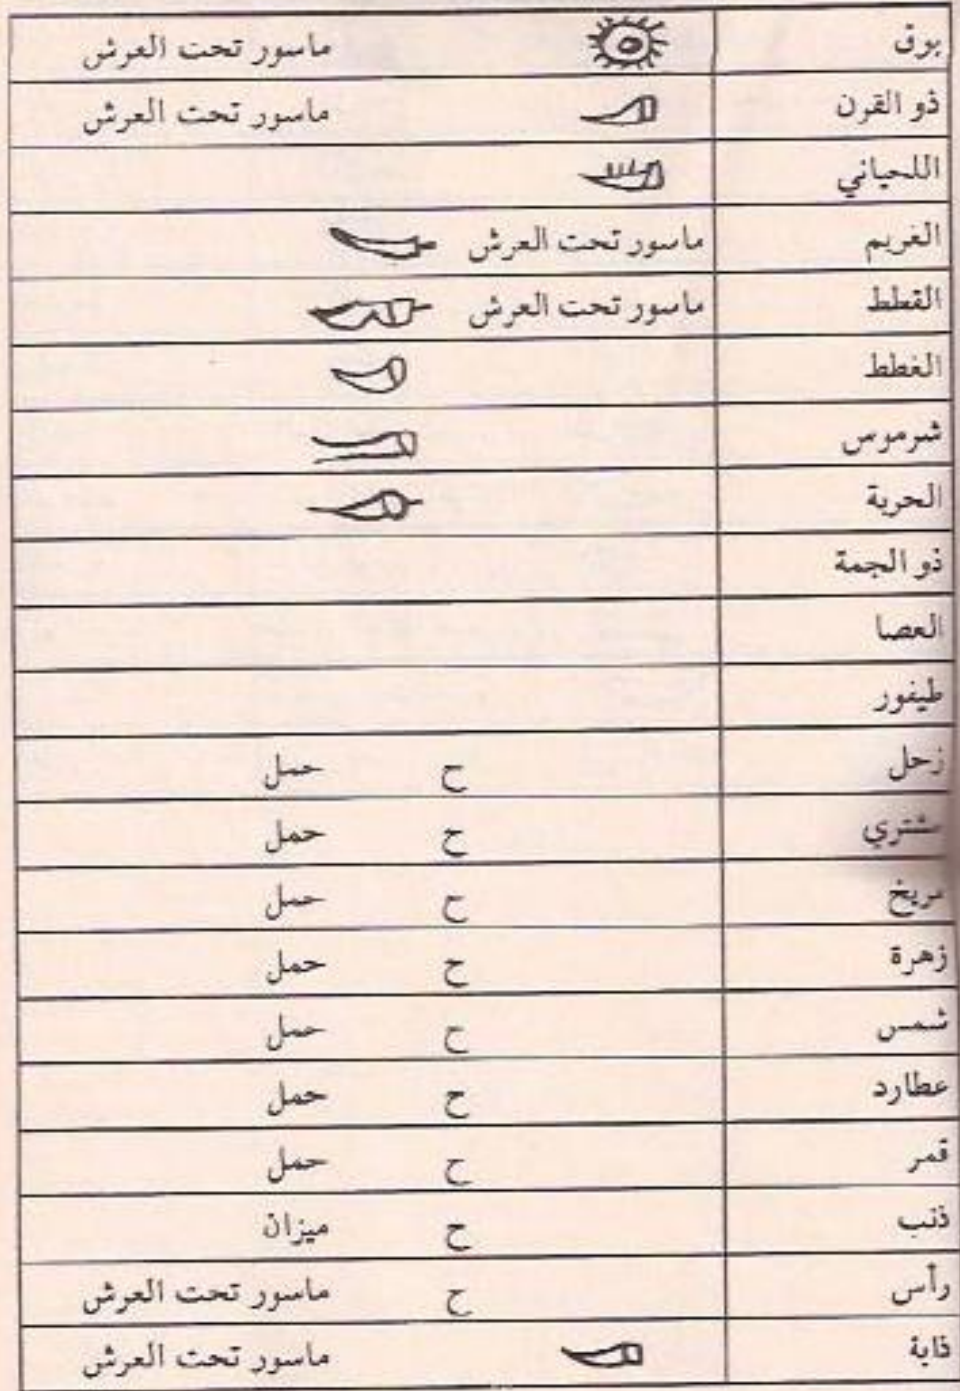 برق ماسور تحت العرش
ذو القرن ماسور تحت العرش
اللحياني
الغريم ماسور تحت العرش
القطط ماسور تحت العرش
الغطط
شرموس
الحربة
ذو الجمة
العصا
طيفور
زحل ح حمل
مشتري ح حمل
مريخ ح حمل
زهرة ح حمل
شمس ح حمل
عطارد ح حمل
قمر ح حمل
ذنب ح ميزان
رأس ح ماسور تحت العرش
ذابة ماسور تحت العرش